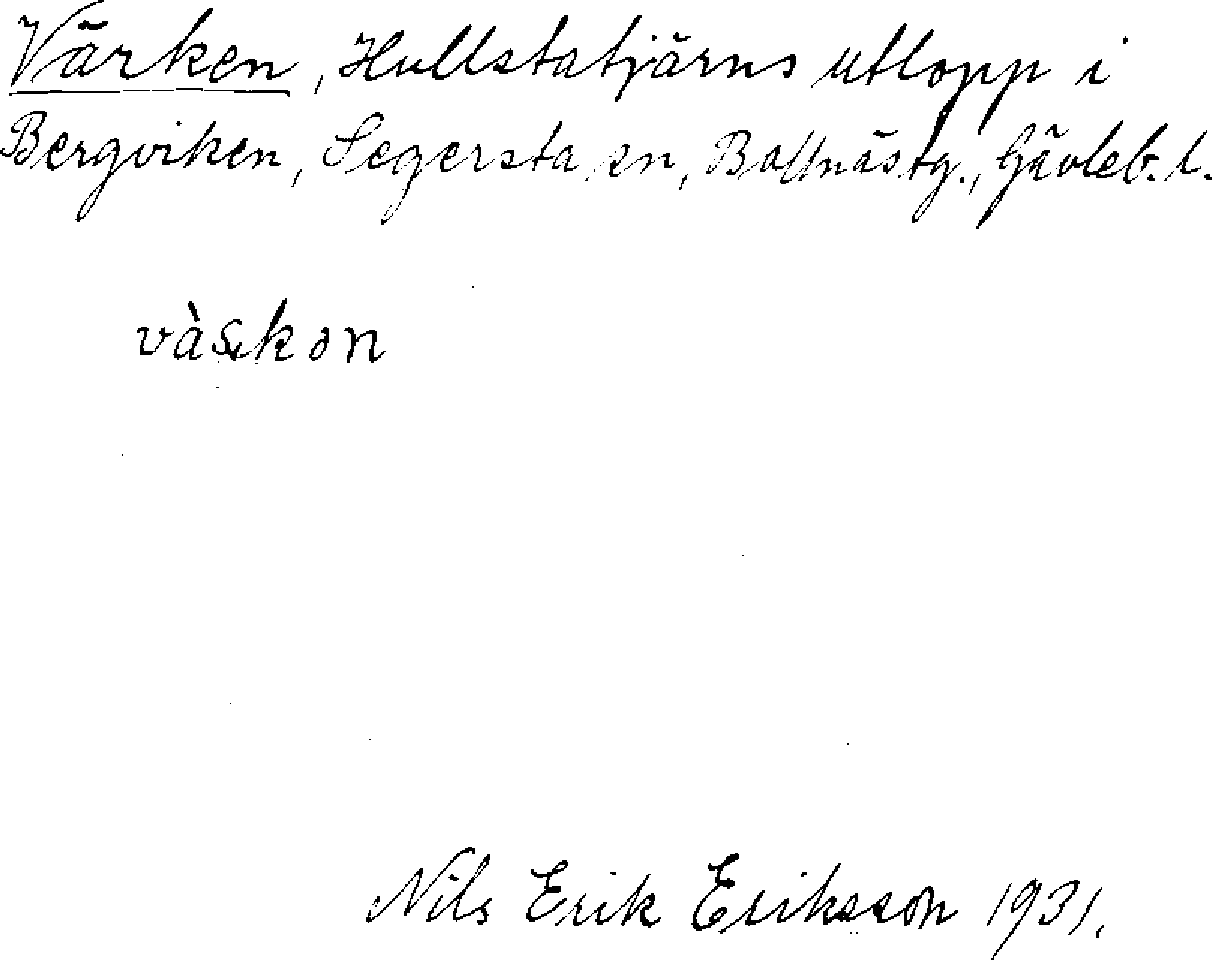 Värken, Hullstatjärns utlopp i
Bergviken, Segersta sn, Bollnästg., Gävleb. l.
Nils Erik Eriksson 1931.